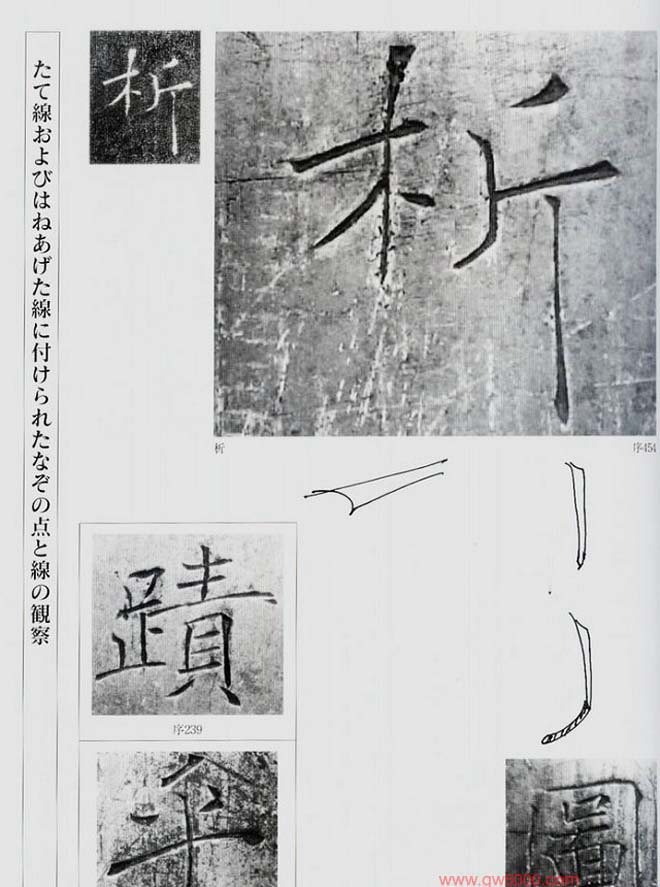 たて線およびはねあげた線に付けられたなぞの点と線の観察
析
析
析
序454
蹟
序239
傘
圖
www.qw3000.com